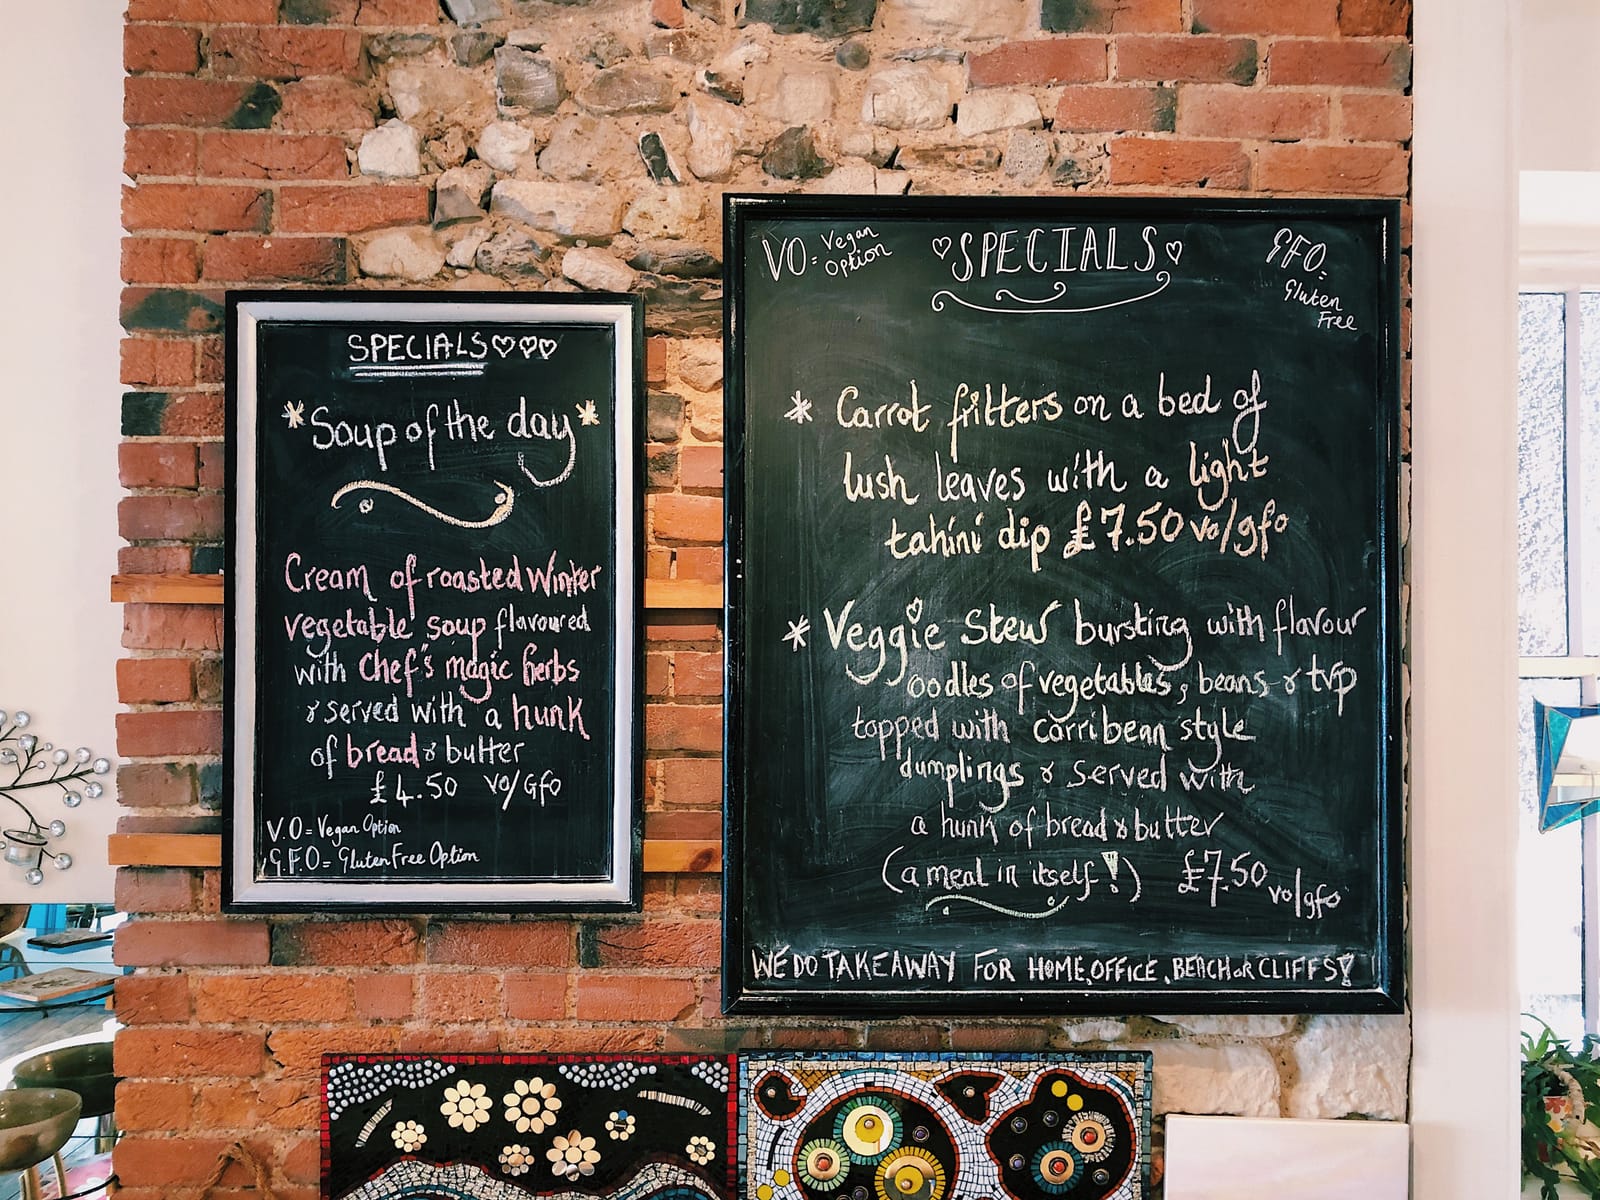 SPECIALS♡♡♡
*Soup of the day*
Cream of roasted Winter
vegetable soup flavoured
with Chef's magic herbs
& served with a hunk
of bread & butter
£4.50 VO/GFO
V.O = Vegan Option
G.F.O = Gluten Free Option
VO = Vegan
Option
♡SPECIALS♡
GFO =
Gluten
Free
* Carrot fritters on a bed of
lush leaves with a light
tahini dip £7.50 vo/gfo
* Veggie Stew bursting with flavour
oodles of vegetables, beans & tvp
topped with carribean style
dumplings & served with
a hunk of bread & butter
(a meal in itself!) £7.50 vo/gfo
WE DO TAKEAWAY FOR HOME, OFFICE, BEACH or CLIFFS!